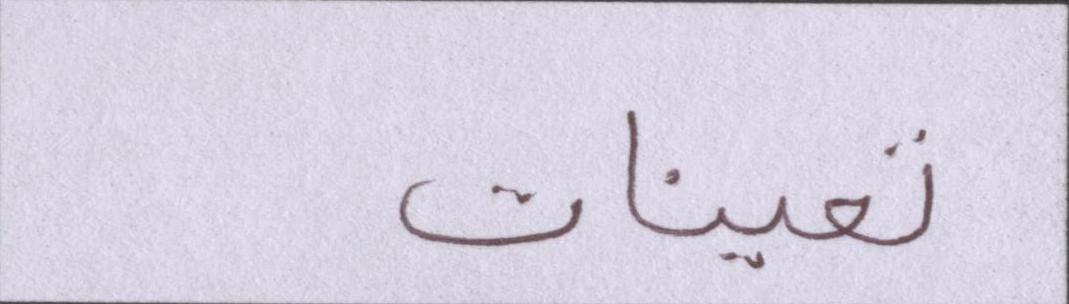 تعينات